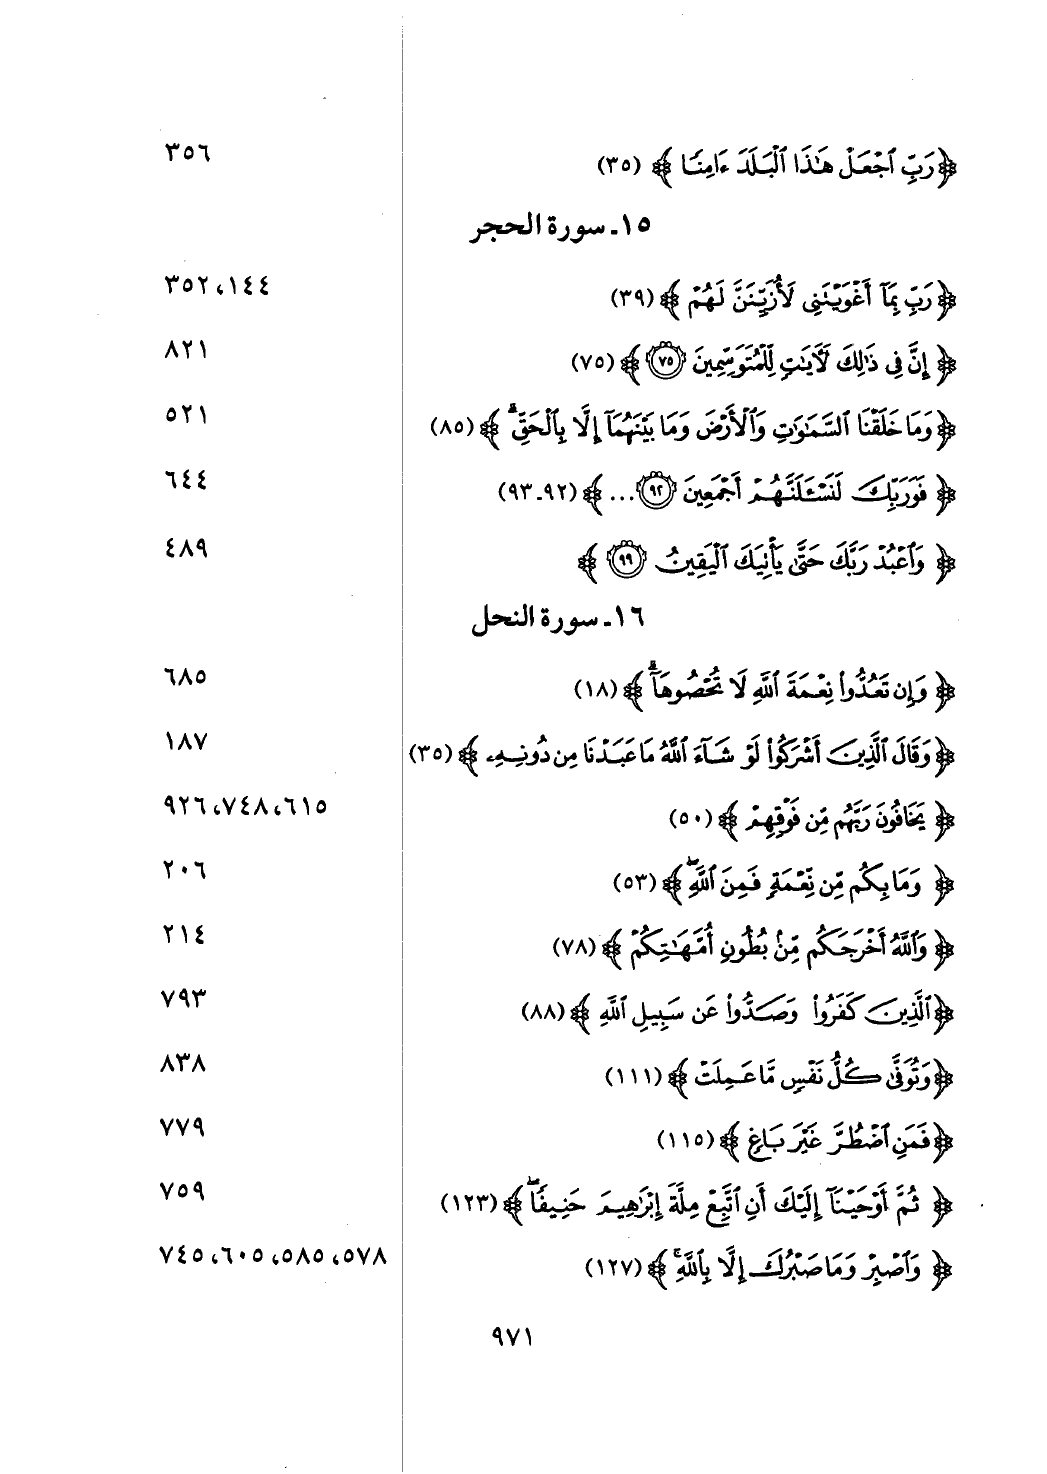 ﴿رَبِّ ٱجْعَلْ هَـٰذَا ٱلْبَلَدَ ءَامِنًا﴾ (٣٥) ٣٥٦
١٥ـ سورة الحجر
﴿رَبِّ بِمَآ أَغْوَيْتَنِى لَأُزَيِّنَنَّ لَهُمْ﴾ (٣٩) ١٤٤، ٣٥٢
﴿إِنَّ فِى ذَٰلِكَ لَـَٔايَـٰتٍ لِّلْمُتَوَسِّمِينَ ٧٥﴾ (٧٥) ٨٢١
﴿وَمَا خَلَقْنَا ٱلسَّمَـٰوَٰتِ وَٱلْأَرْضَ وَمَا بَيْنَهُمَآ إِلَّا بِٱلْحَقِّ ۗ﴾ (٨٥) ٥٢١
﴿فَوَرَبِّكَ لَنَسْـَٔلَنَّهُمْ أَجْمَعِينَ ٩٢ ...﴾ (٩٢ـ٩٣) ٦٤٤
﴿وَٱعْبُدْ رَبَّكَ حَتَّىٰ يَأْتِيَكَ ٱلْيَقِينُ ٩٩﴾ ٤٨٩
١٦ـ سورة النحل
﴿وَإِن تَعُدُّوا۟ نِعْمَةَ ٱللَّهِ لَا تُحْصُوهَآ ۗ﴾ (١٨) ٦٨٥
﴿وَقَالَ ٱلَّذِينَ أَشْرَكُوا۟ لَوْ شَآءَ ٱللَّهُ مَا عَبَدْنَا مِن دُونِهِۦ﴾ (٣٥) ١٨٧
﴿يَخَافُونَ رَبَّهُم مِّن فَوْقِهِمْ﴾ (٥٠) ٦١٥، ٧٤٨، ٩٢٦
﴿وَمَا بِكُم مِّن نِّعْمَةٍ فَمِنَ ٱللَّهِ ۖ﴾ (٥٣) ٢٠٦
﴿وَٱللَّهُ أَخْرَجَكُم مِّنۢ بُطُونِ أُمَّهَـٰتِكُمْ﴾ (٧٨) ٢١٤
﴿ٱلَّذِينَ كَفَرُوا۟ وَصَدُّوا۟ عَن سَبِيلِ ٱللَّهِ﴾ (٨٨) ٧٩٣
﴿وَتُوَفَّىٰ كُلُّ نَفْسٍ مَّا عَمِلَتْ﴾ (١١١) ٨٣٨
﴿فَمَنِ ٱضْطُرَّ غَيْرَ بَاغٍ﴾ (١١٥) ٧٧٩
﴿ثُمَّ أَوْحَيْنَآ إِلَيْكَ أَنِ ٱتَّبِعْ مِلَّةَ إِبْرَٰهِيمَ حَنِيفًا ۖ﴾ (١٢٣) ٧٥٩
﴿وَٱصْبِرْ وَمَا صَبْرُكَ إِلَّا بِٱللَّهِ ۚ﴾ (١٢٧) ٥٧٨، ٥٨٥، ٦٠٥، ٧٤٥
٩٧١